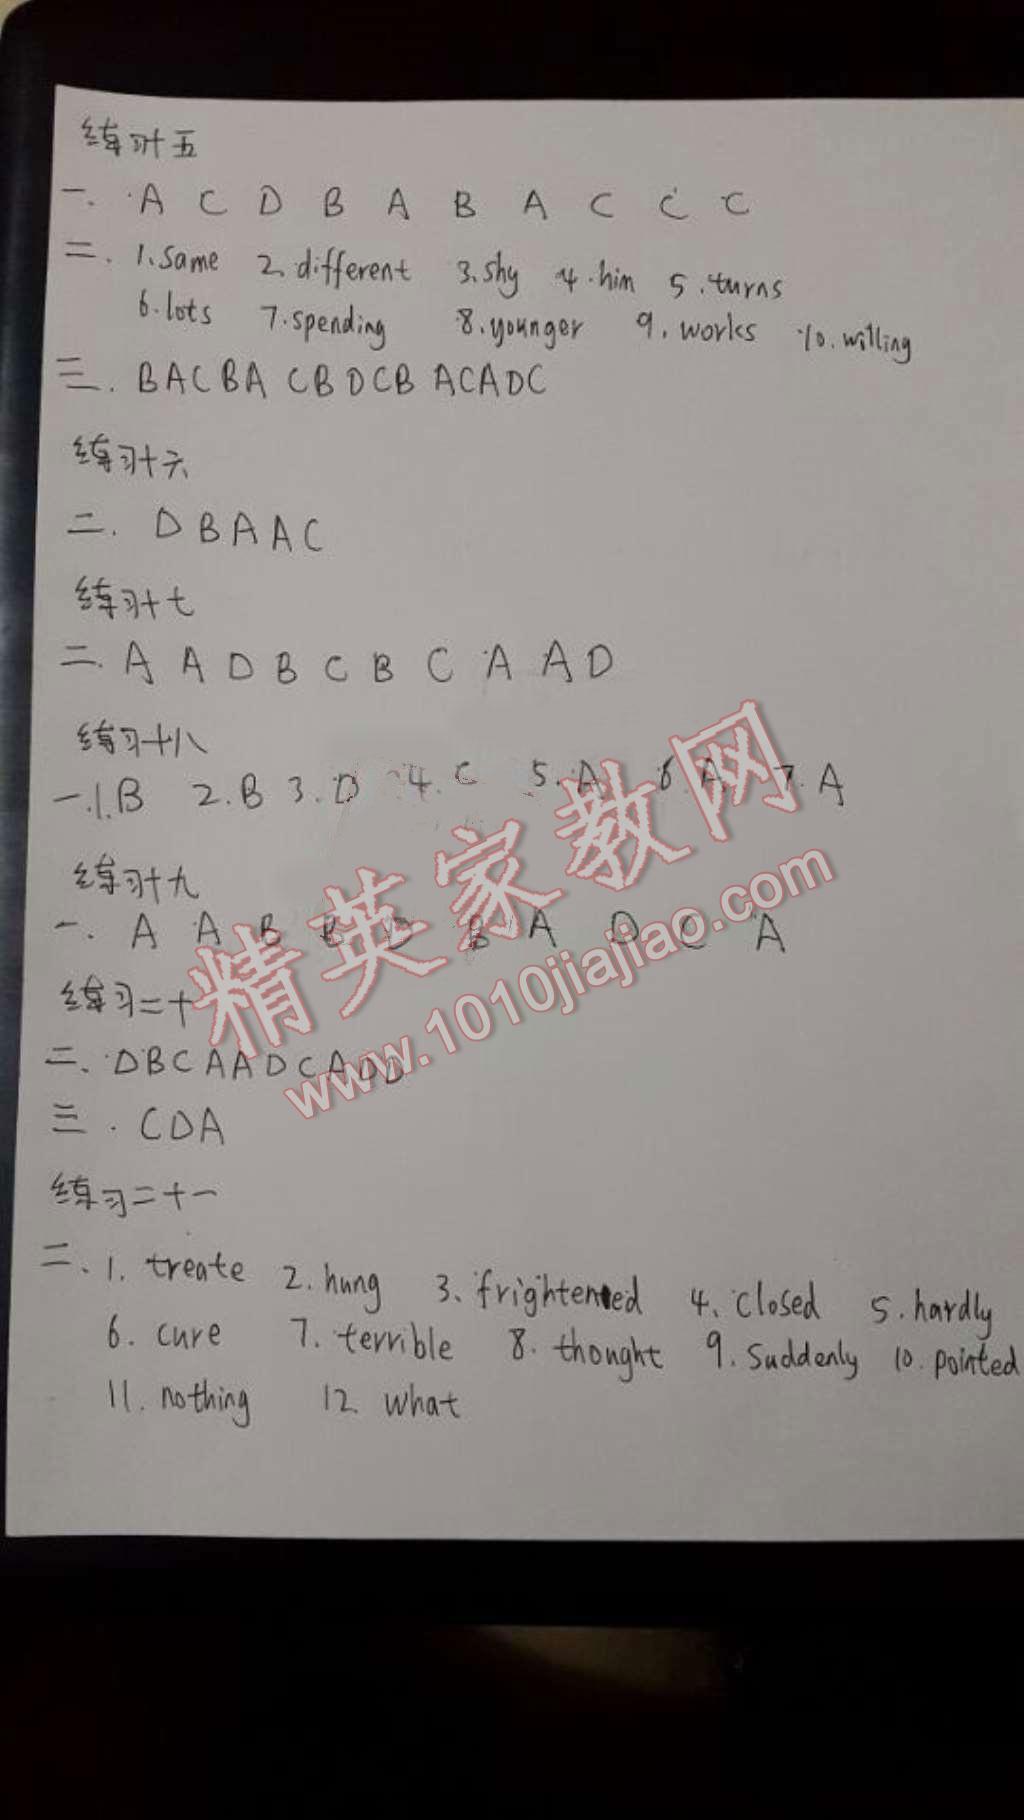 练习十五
一. A C D B A B A C C C
二. 1. same 2. different 3. shy 4. him 5. turns
6. lots 7. spending 8. younger 9. works 10. willing
三. BACBA CBDCB ACADC
练习十六
二. DBAAC
练习十七
二. A A D B C B C A A D
练习十八
一. 1. B 2. B 3. D 4. C 5. A 6. A 7. A
练习十九
一. A A B B D B A D C A
练习二十
二. DBCAADCADD
三. CDA
练习二十一
二. 1. treate 2. hung 3. frightened 4. closed 5. hardly
6. cure 7. terrible 8. thought 9. Suddenly 10. pointed
11. nothing 12. what
精英家教网
www.1010jiajiao.com